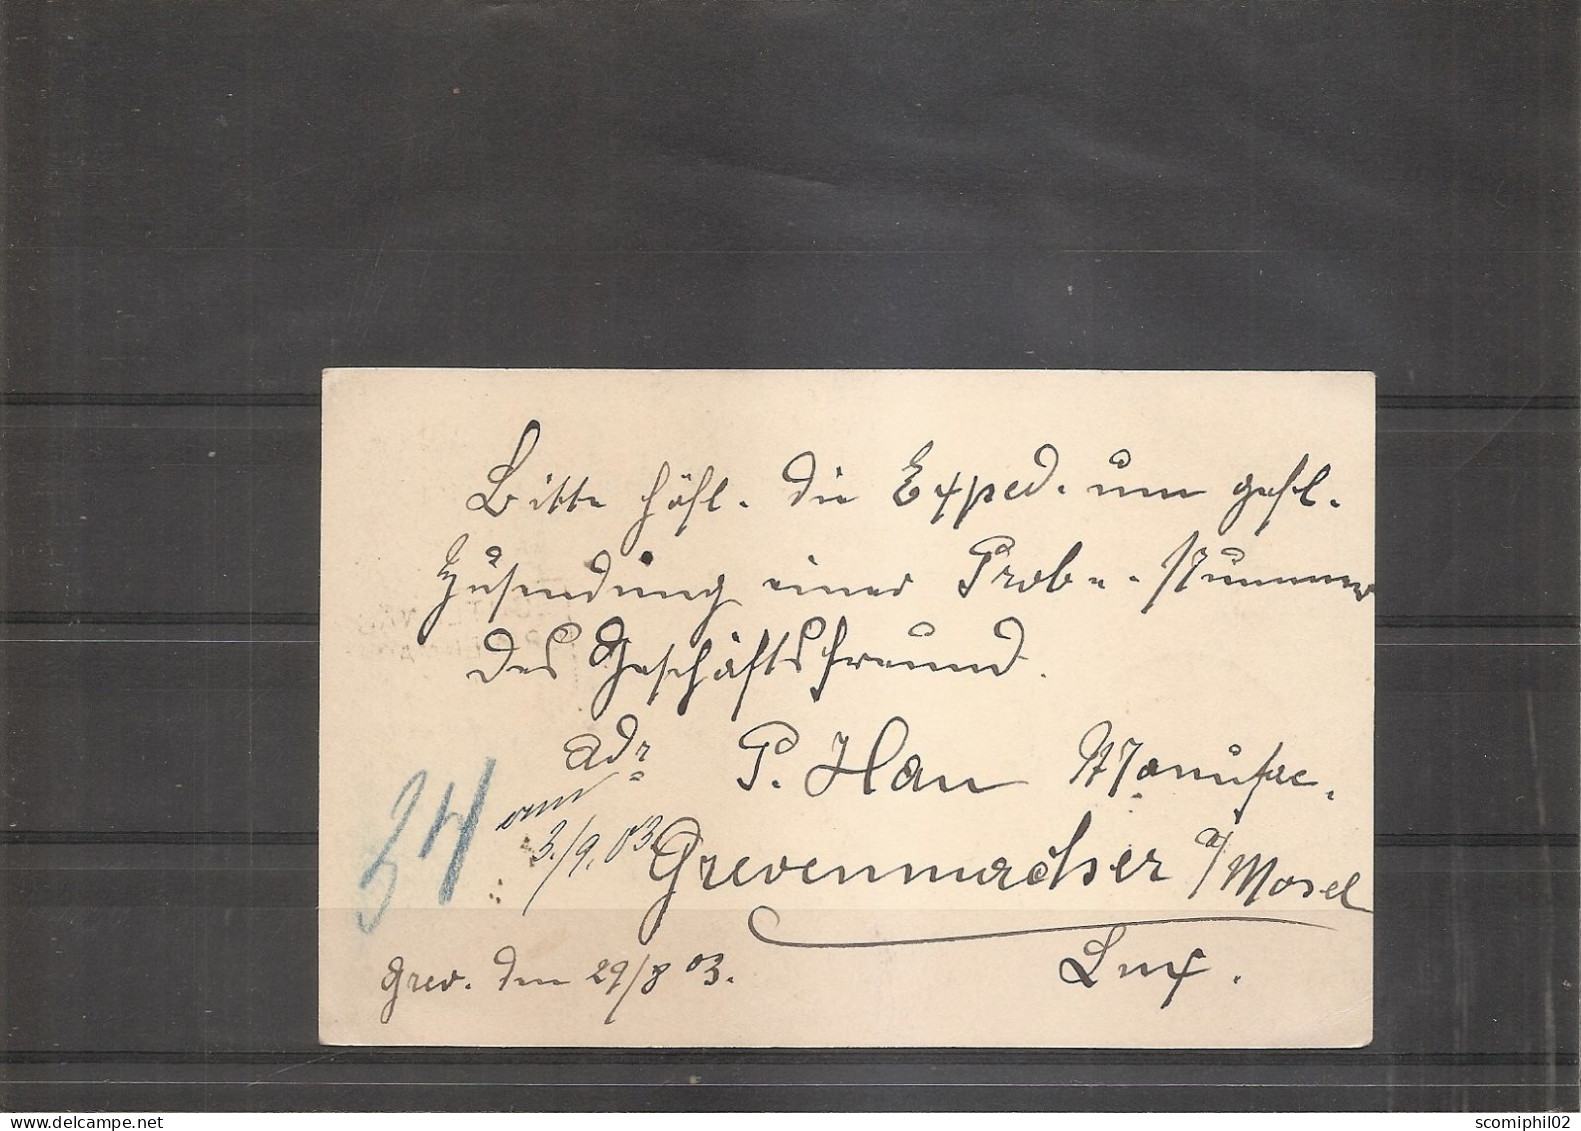 Bitte höfl. die Exped. um gefl.
Zusendung einer Probe-Nummer
des Geschäftsfreund.
adr. P. Han Manufac.
3./9. 03.
Grevenmacher a/Mosel
Lux.
Grev. den 29/8 03.
34
scomiphil02